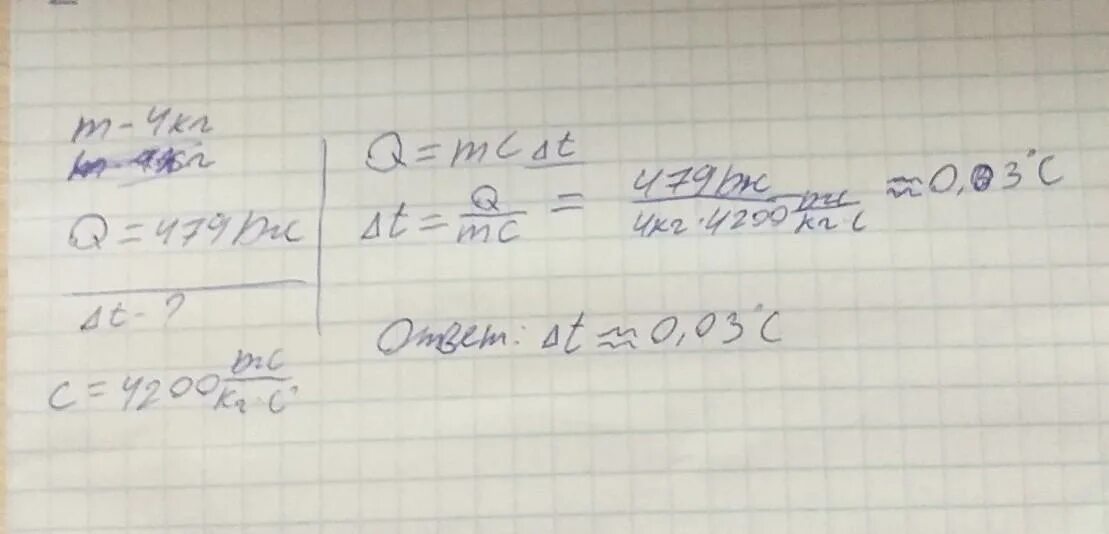 m - 4кг
Q = 479 Дж
Δt - ?
c = 4200 Дж/кг·С°
Q = mcΔt
Δt = Q/mc = 479 Дж/4кг·4200 Дж/кг·С ≈ 0,03°С
Ответ: Δt ≈ 0,03°С